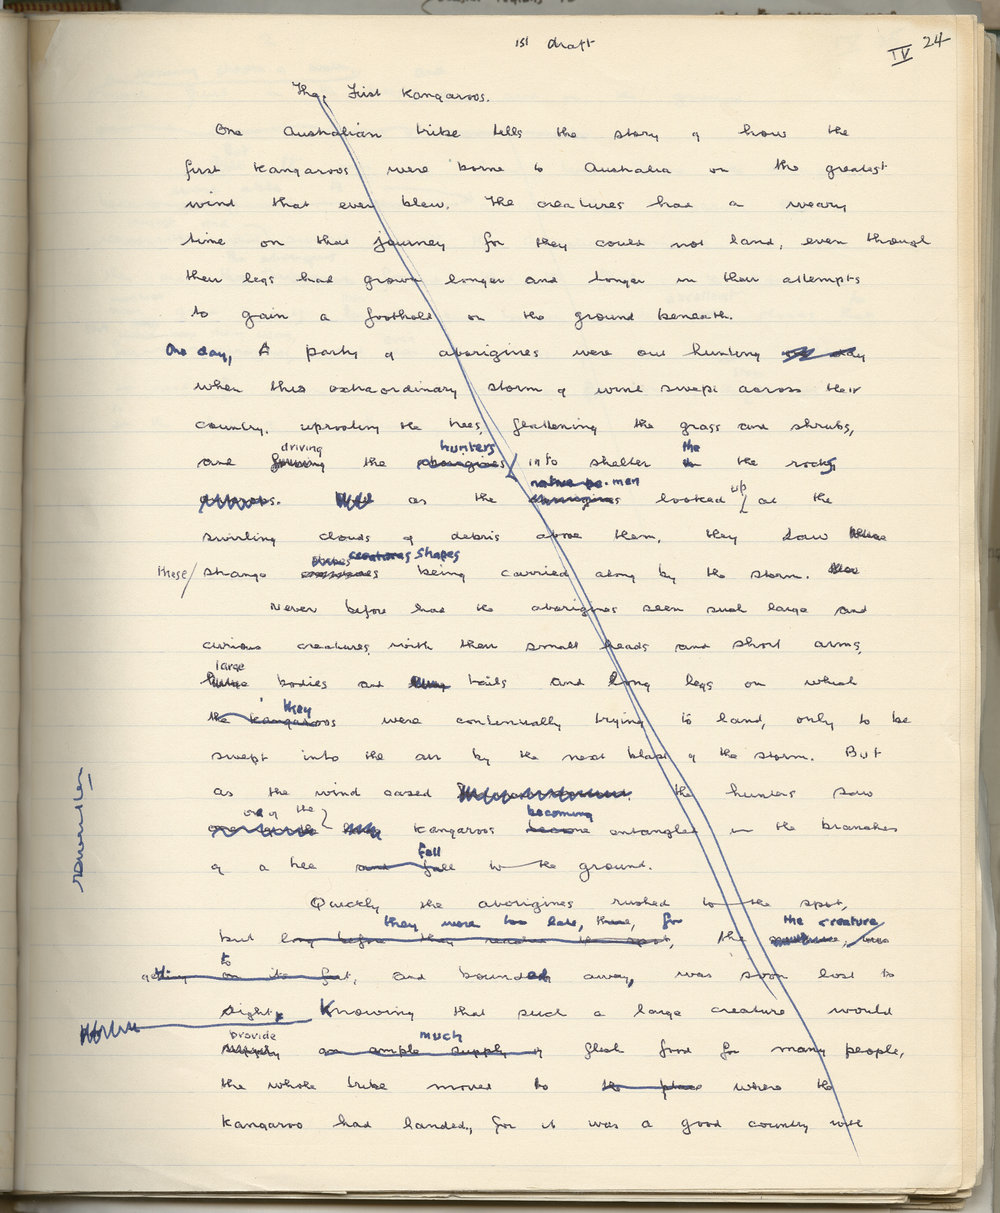 1st draft
IV 24
The First Kangaroos.
One Australian tribe tells the story of how the
first kangaroos were borne to Australia on the greatest
wind that ever blew. The creatures had a weary
time on that journey for they could not land, even though
their legs had grown longer and longer in their attempts
to gain a foothold on the ground beneath.
One day, A party of aborigines were out hunting
when this extraordinary storm of wind swept across their
country, uprooting the trees, flattening the grass and shrubs,
driving hunters the
and the aborigines into shelter in the rocks
native pe men up
as the aborigines looked at the
swirling clouds of debris above them, they saw these
shapes creatures shapes
these strange creatures being carried along by the storm.
Never before had the aborigines seen such large and
curious creatures, with their small heads and short arms,
large
huge bodies and long tails and long legs on which
they
the kangaroos were continually trying to land, only to be
swept into the air by the next blast of the storm. But
as the wind eased the hunters saw
one of the becoming
kangaroos become entangled in the branches
fall
of a tree and fall to the ground.
Quickly the aborigines rushed to the spot,
they were too late, for the creature
but long before they reached the spot, the
to
getting on its feet, and bounded away, was soon lost to
sight. Knowing that such a large creature would
provide much
supply an ample supply of flesh food for many people,
the whole tribe moved to the place where the
kangaroo had landed, for it was a good country with
rewritten